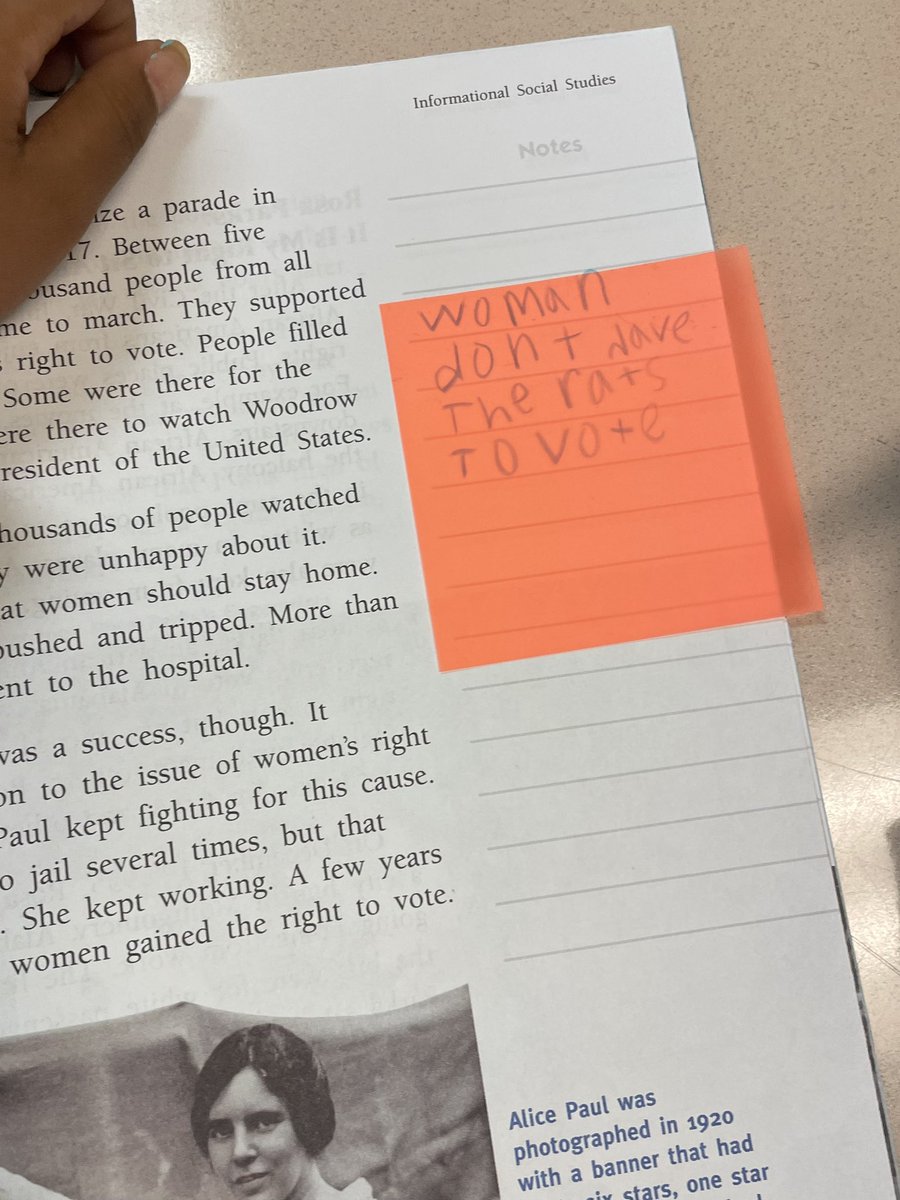 Informational Social Studies
Notes
ize a parade in
17. Between five
ousand people from all
me to march. They supported
right to vote. People filled
Some were there for the
ere there to watch Woodrow
resident of the United States.
housands of people watched
y were unhappy about it.
at women should stay home.
pushed and tripped. More than
ent to the hospital.
was a success, though. It
on to the issue of women's right
Paul kept fighting for this cause.
o jail several times, but that
. She kept working. A few years
women gained the right to vote.
woman
don't dave
The rats
To vote
Alice Paul was
photographed in 1920
with a banner that had
six stars, one star